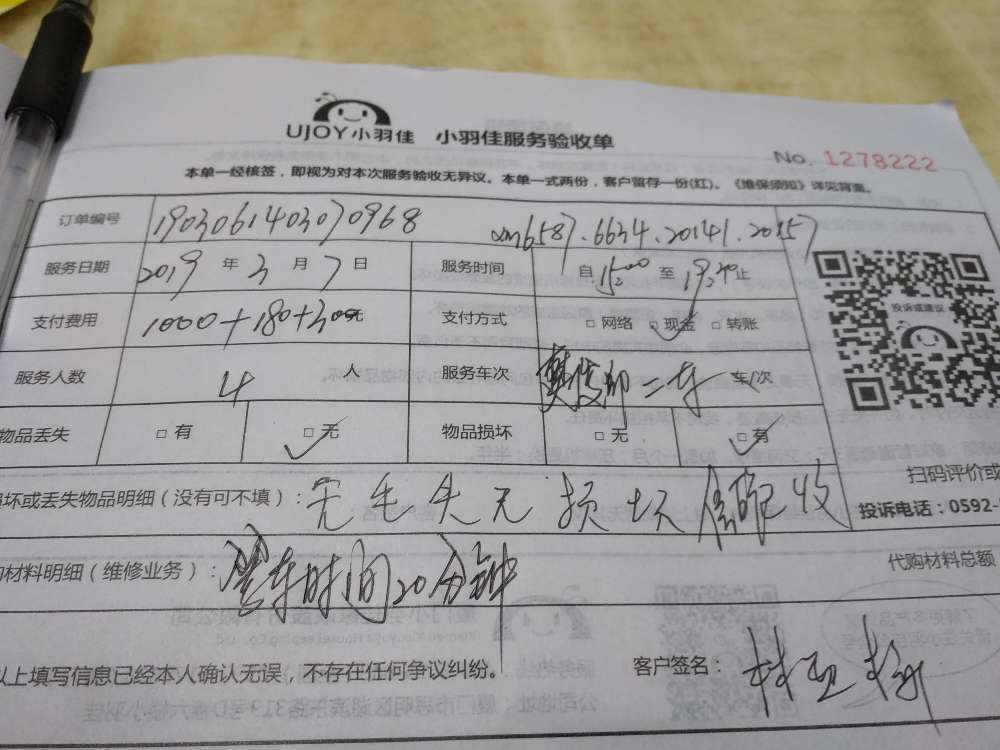 UJOY小羽佳 小羽佳服务验收单
No. 1278222
本单一经核签，即视为对本次服务验收无异议。本单一式两份，客户留存一份(红)。《维保须知》详见背面。
订单编号 190306140307 0968 6587.6634.20141.20157
服务日期 2019 年 3 月 7 日 服务时间 自 15:00 至 19:20 止
支付费用 1000+180+300元 支付方式 □ 网络 ☑ 现金 □ 转账
服务人数 4 人 服务车次 二车 车/次
物品丢失 □ 有 ☑ 无 物品损坏 □ 无 ☑ 有
投诉或建议
扫码评价或
投诉电话：0592-
损坏或丢失物品明细（没有可不填）： 无丢失无损坏 收
材料明细（维修业务）： 车时间20分钟
代购材料总额
以上填写信息已经本人确认无误，不存在任何争议纠纷。 客户签名：